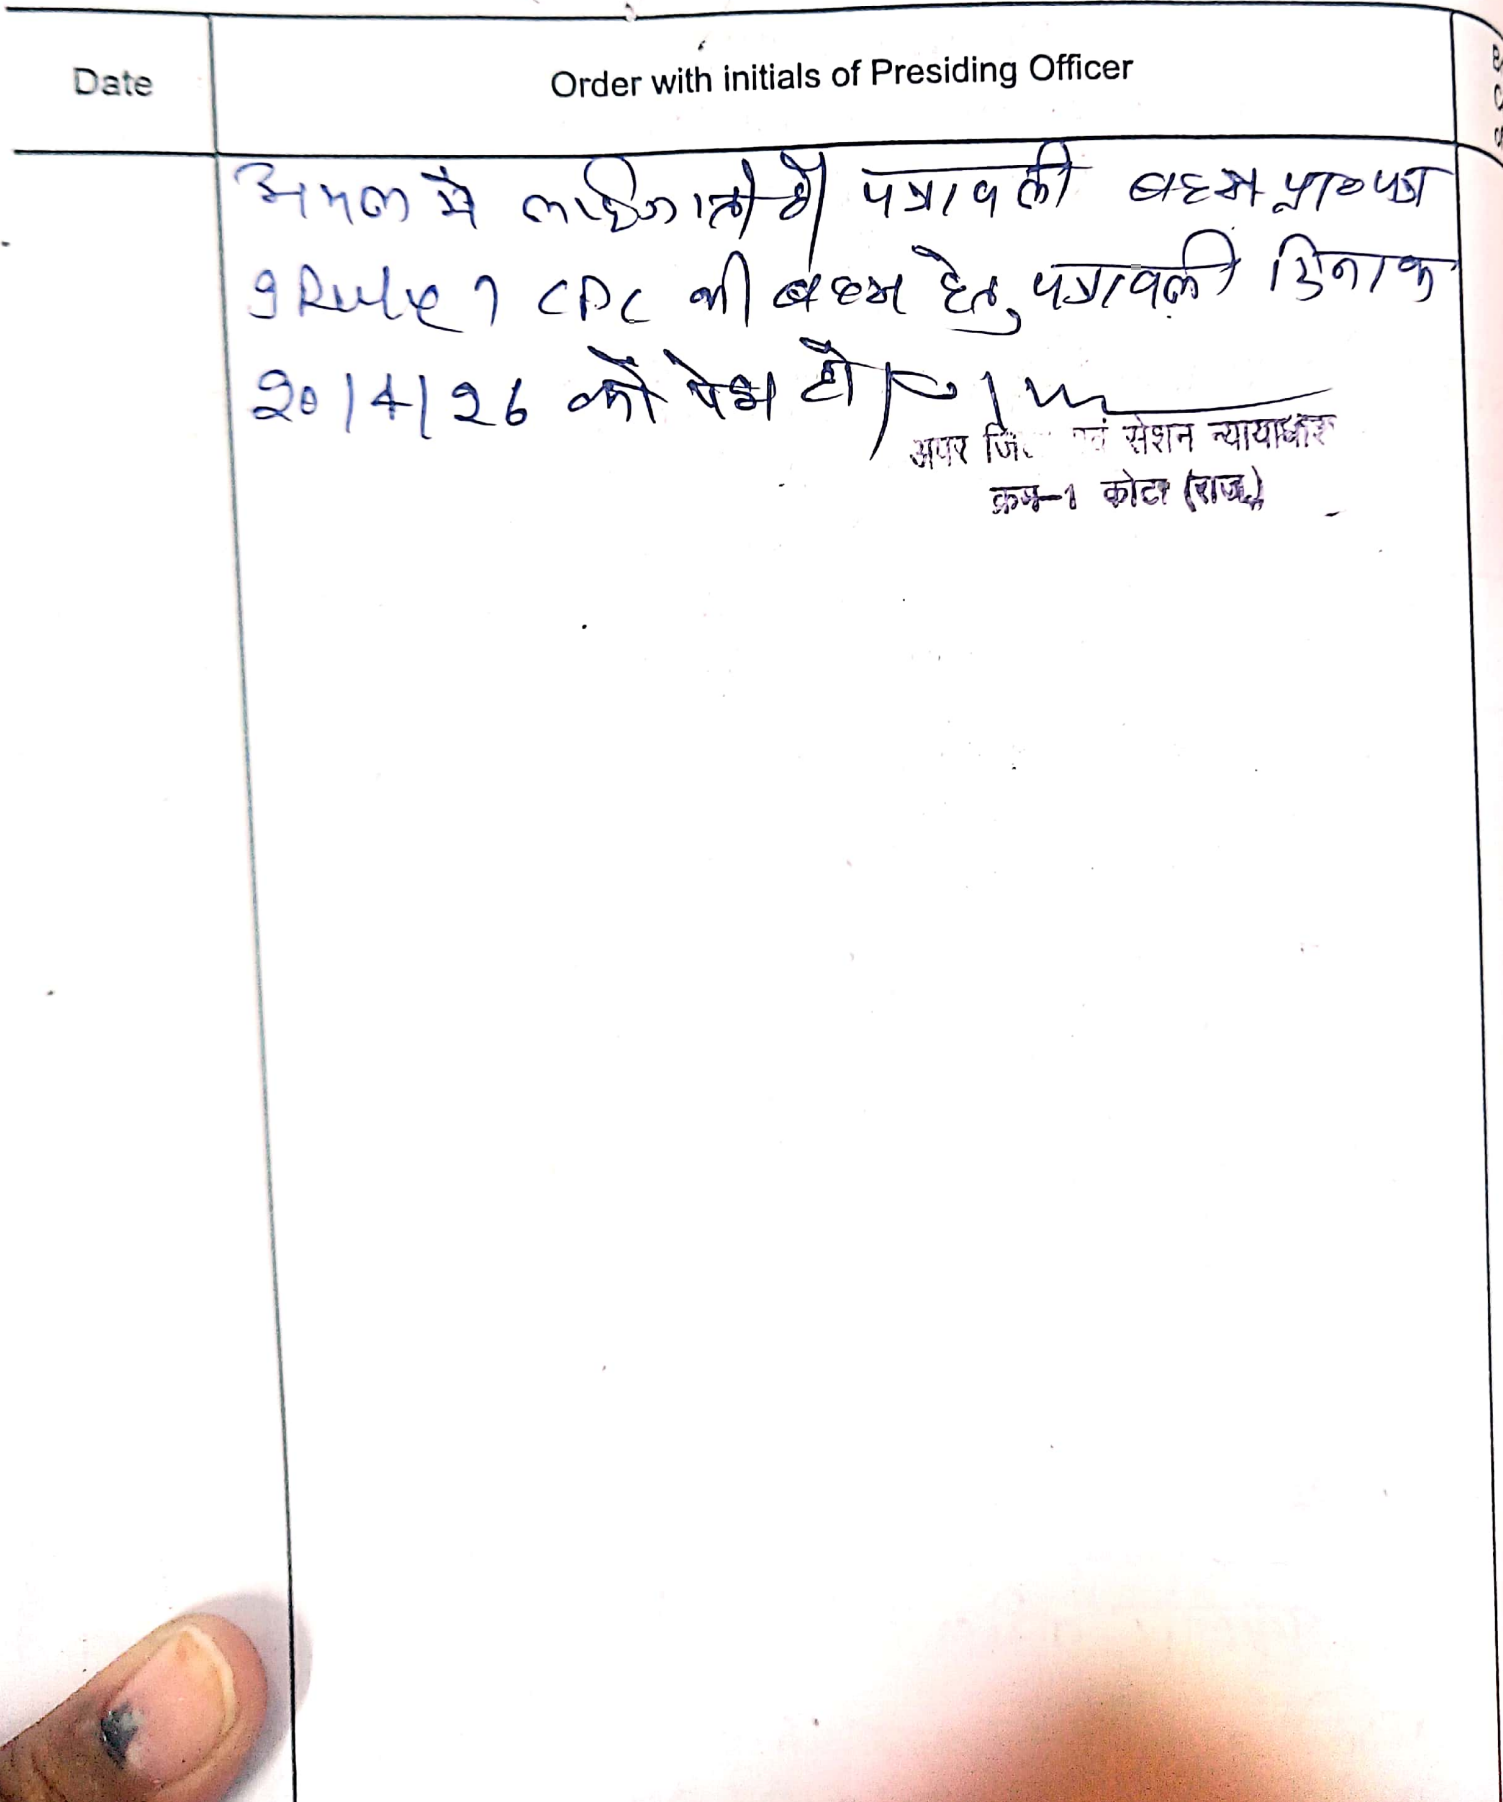 Date
Order with initials of Presiding Officer
अमल में लाई जाती है। पत्रावली बहस प्रा० पत्र
9 Rule 7 CPC की बहस हेतु पत्रावली दिनांक
20/4/26 को पेश हो।
अपर एवं सेशन न्यायाधीश
क्रम-1 कोटा (राज.)